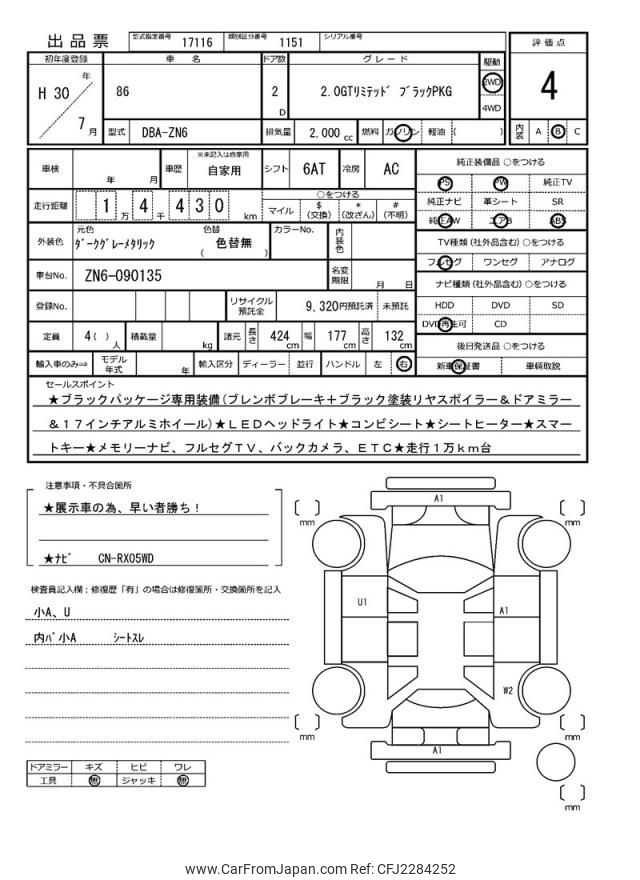 出品票
型式指定番号 17116 類別区分番号 1151 シリアル番号
評価点
4
内装 A B C
初年度登録 車名 ドア数 グレード 駆動
H 30 年 7 月
86
2 D
2.0GTリミテッド ブラックPKG
2WD
4WD
型式 DBA-ZN6 排気量 2,000 cc 燃料 ガソリン 軽油 ( )
車検 年 月 車歴 ※未記入は自家用 自家用 シフト 6AT 冷房 AC
走行距離 1 万 4 千 4 3 0 km
○をつける
マイル $ (交換) * (改ざん) # (不明)
外装色 元色 ダークグレーメタリック 色替 ( 色替無 ) カラーNo. 内装色
車台No. ZN6-090135 名変期限 月 日
登録No. リサイクル預託金 9,320円預託済 未預託
定員 4( ) 人 積載量 kg 諸元 長さ 424 cm 幅 177 cm 高さ 132 cm
輸入車のみ⇒ モデル年式 年 輸入区分 ディーラー 並行 ハンドル 左 右
純正装備品 ○をつける
PS PW 純正TV
純正ナビ 革シート SR
純正AW エアB ABS
TV種類 (社外品含む) ○をつける
フルセグ ワンセグ アナログ
ナビ種類 (社外品含む) ○をつける
HDD DVD SD
DVD再生可 CD
後日発送品 ○をつける
新車保証書 車輌取説
セールスポイント
★ブラックパッケージ専用装備(ブレンボブレーキ+ブラック塗装リヤスポイラー&ドアミラー
&17インチアルミホイール)★LEDヘッドライト★コンビシート★シートヒーター★スマー
トキー★メモリーナビ、フルセグTV、バックカメラ、ETC★走行1万km台
注意事項・不具合箇所
★展示車の為、早い者勝ち!
★ナビ CN-RX05WD
検査員記入欄:修復歴「有」の場合は修復箇所・交換箇所を記入
小A、U
内バ小A シートスレ
ドアミラー キズ ヒビ ワレ
工具 無 ジャッキ 無
A1
mm
mm
U1
A1
W2
mm
mm
A1
mm
www.CarFromJapan.com Ref: CFJ2284252